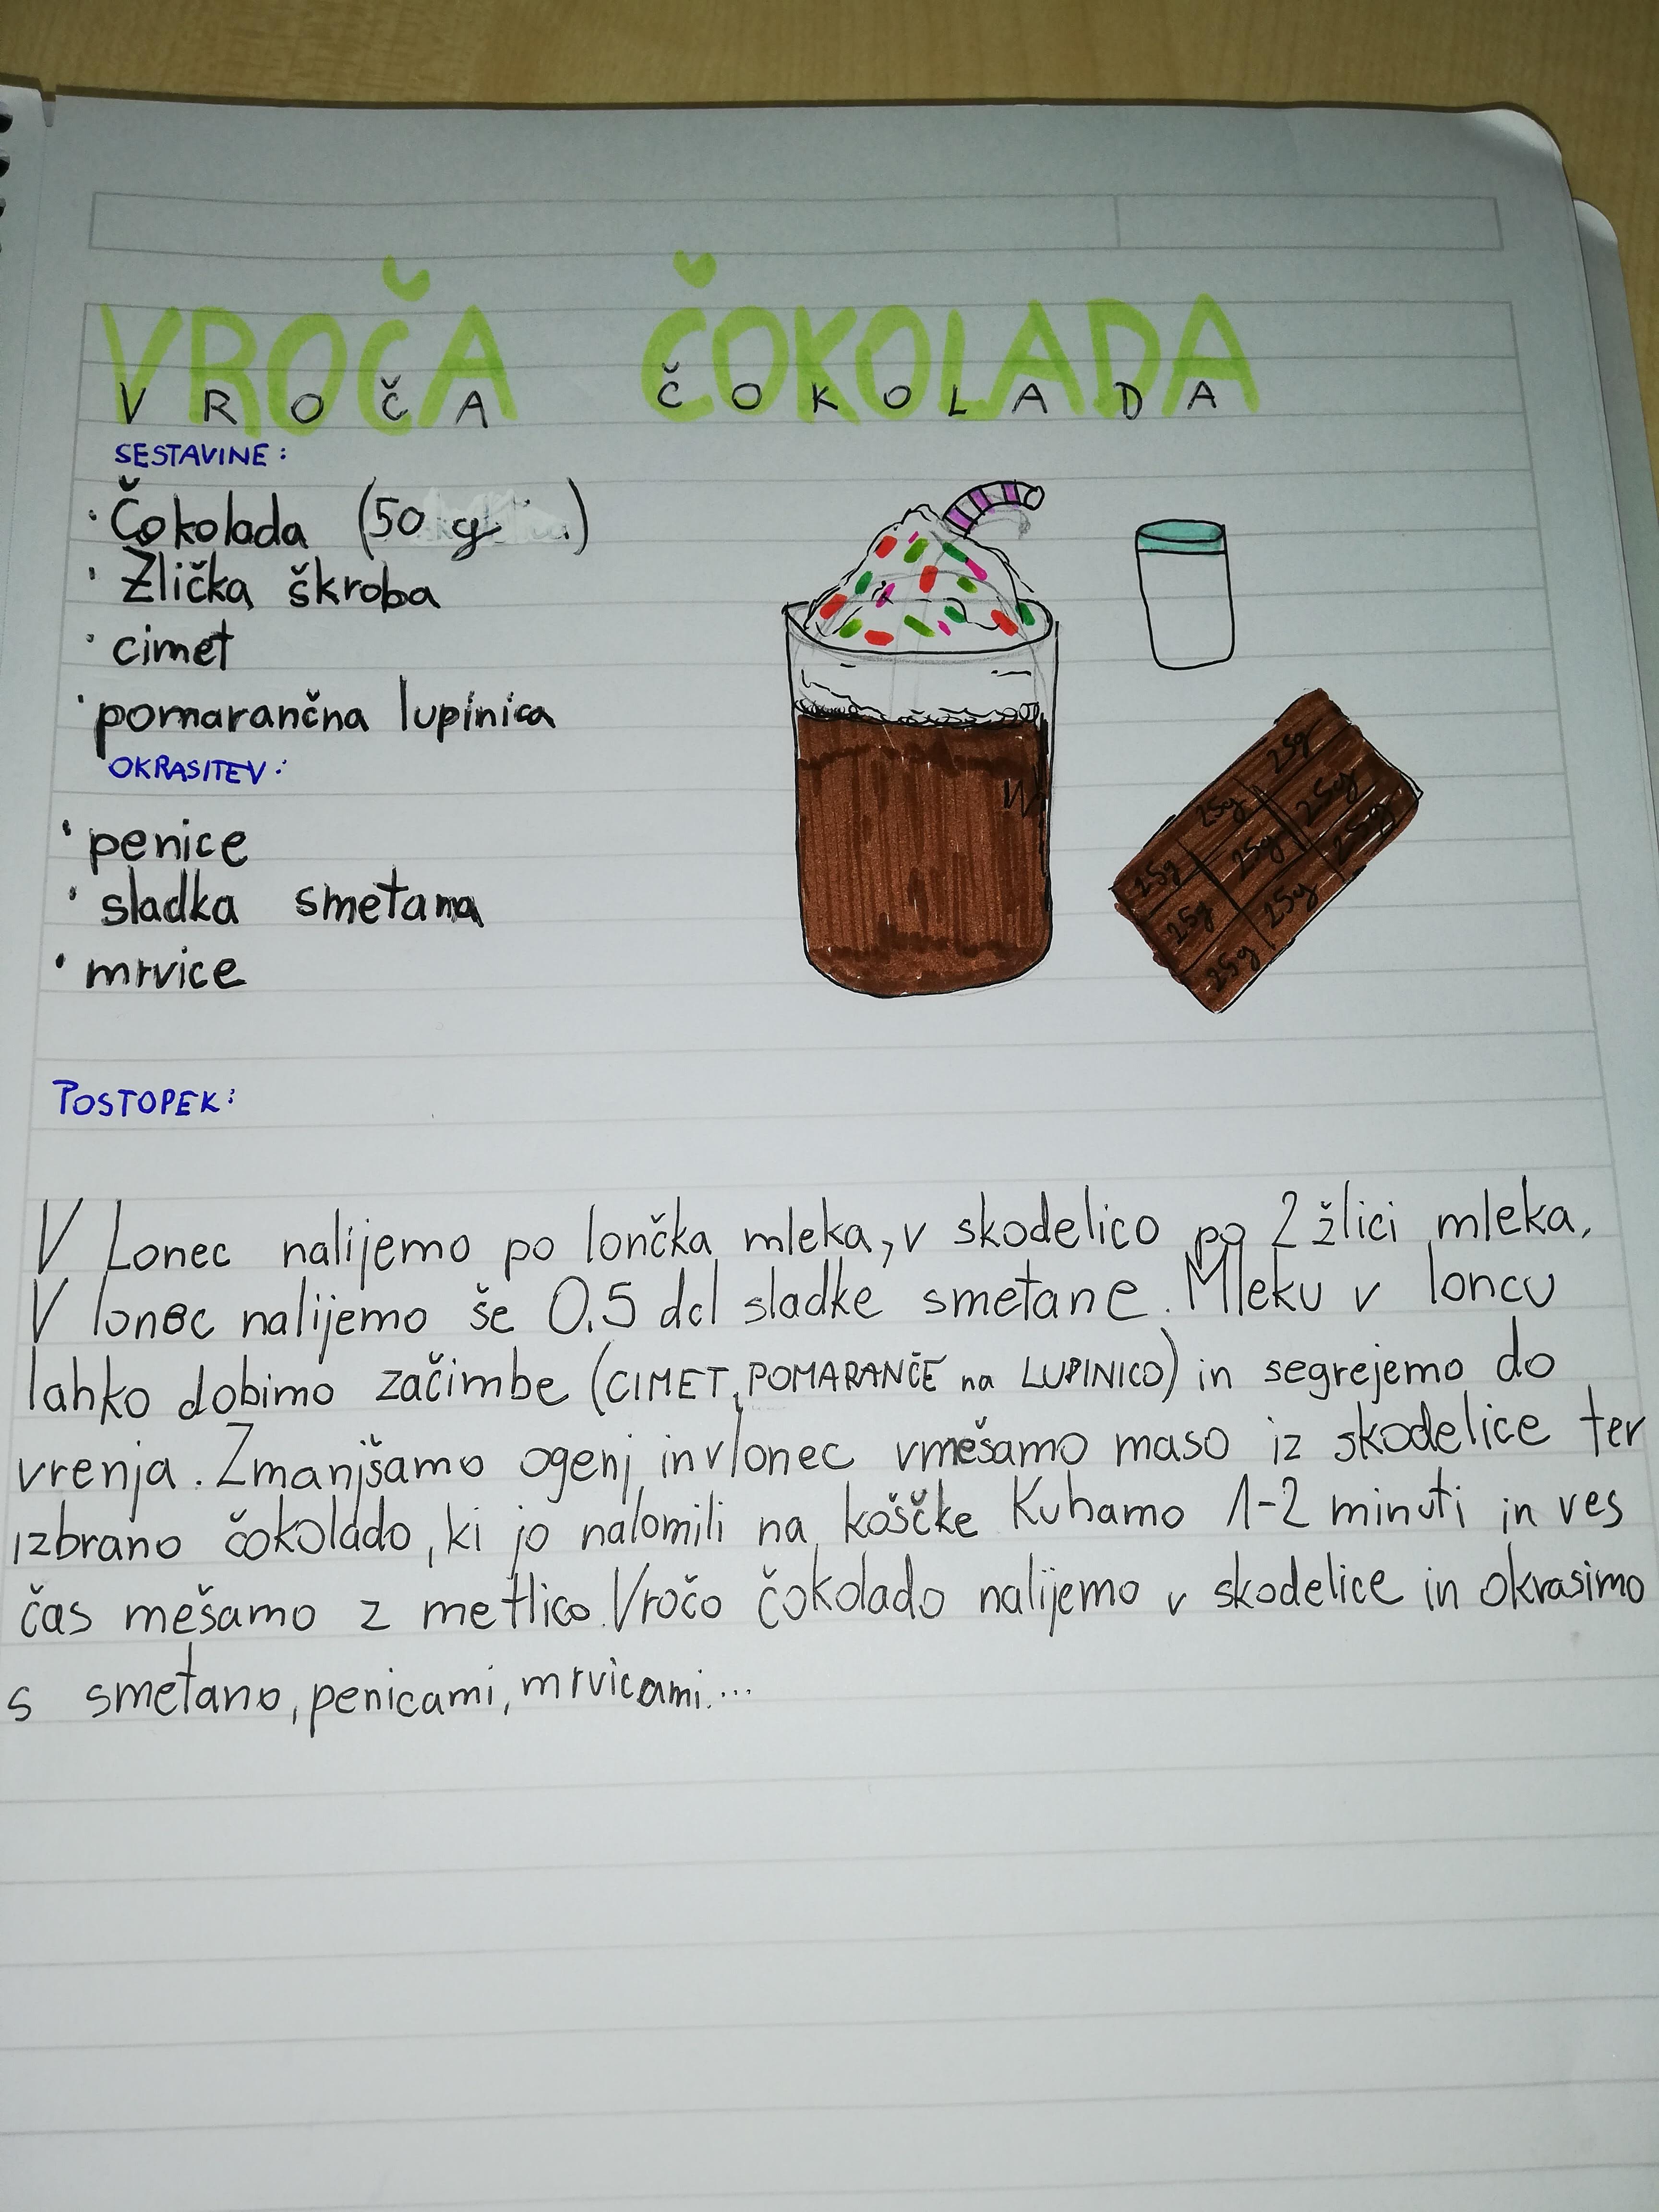 VROČA ČOKOLADA
VROČA ČOKOLADA
SESTAVINE:
• Čokolada (50 g)
• Žlička škroba
• cimet
• pomarančna lupinica
OKRASITEV:
• penice
• sladka smetana
• mrvice
25g
25g 25g
25g 25g 25g
25g 25g
25g
POSTOPEK:
V Lonec nalijemo po lončka mleka, v skodelico po 2 žlici mleka.
V lonec nalijemo še 0.5 dcl sladke smetane. Mleku v loncu
lahko dobimo začimbe (CIMET, POMARANČE na LUPINICO) in segrejemo do
vrenja. Zmanjšamo ogenj in v lonec vmešamo maso iz skodelice ter
izbrano čokolado, ki jo nalomili na koščke Kuhamo 1-2 minuti in ves
čas mešamo z metlico. Vročo čokolado nalijemo v skodelice in okrasimo
s smetano, penicami, mrvicami...